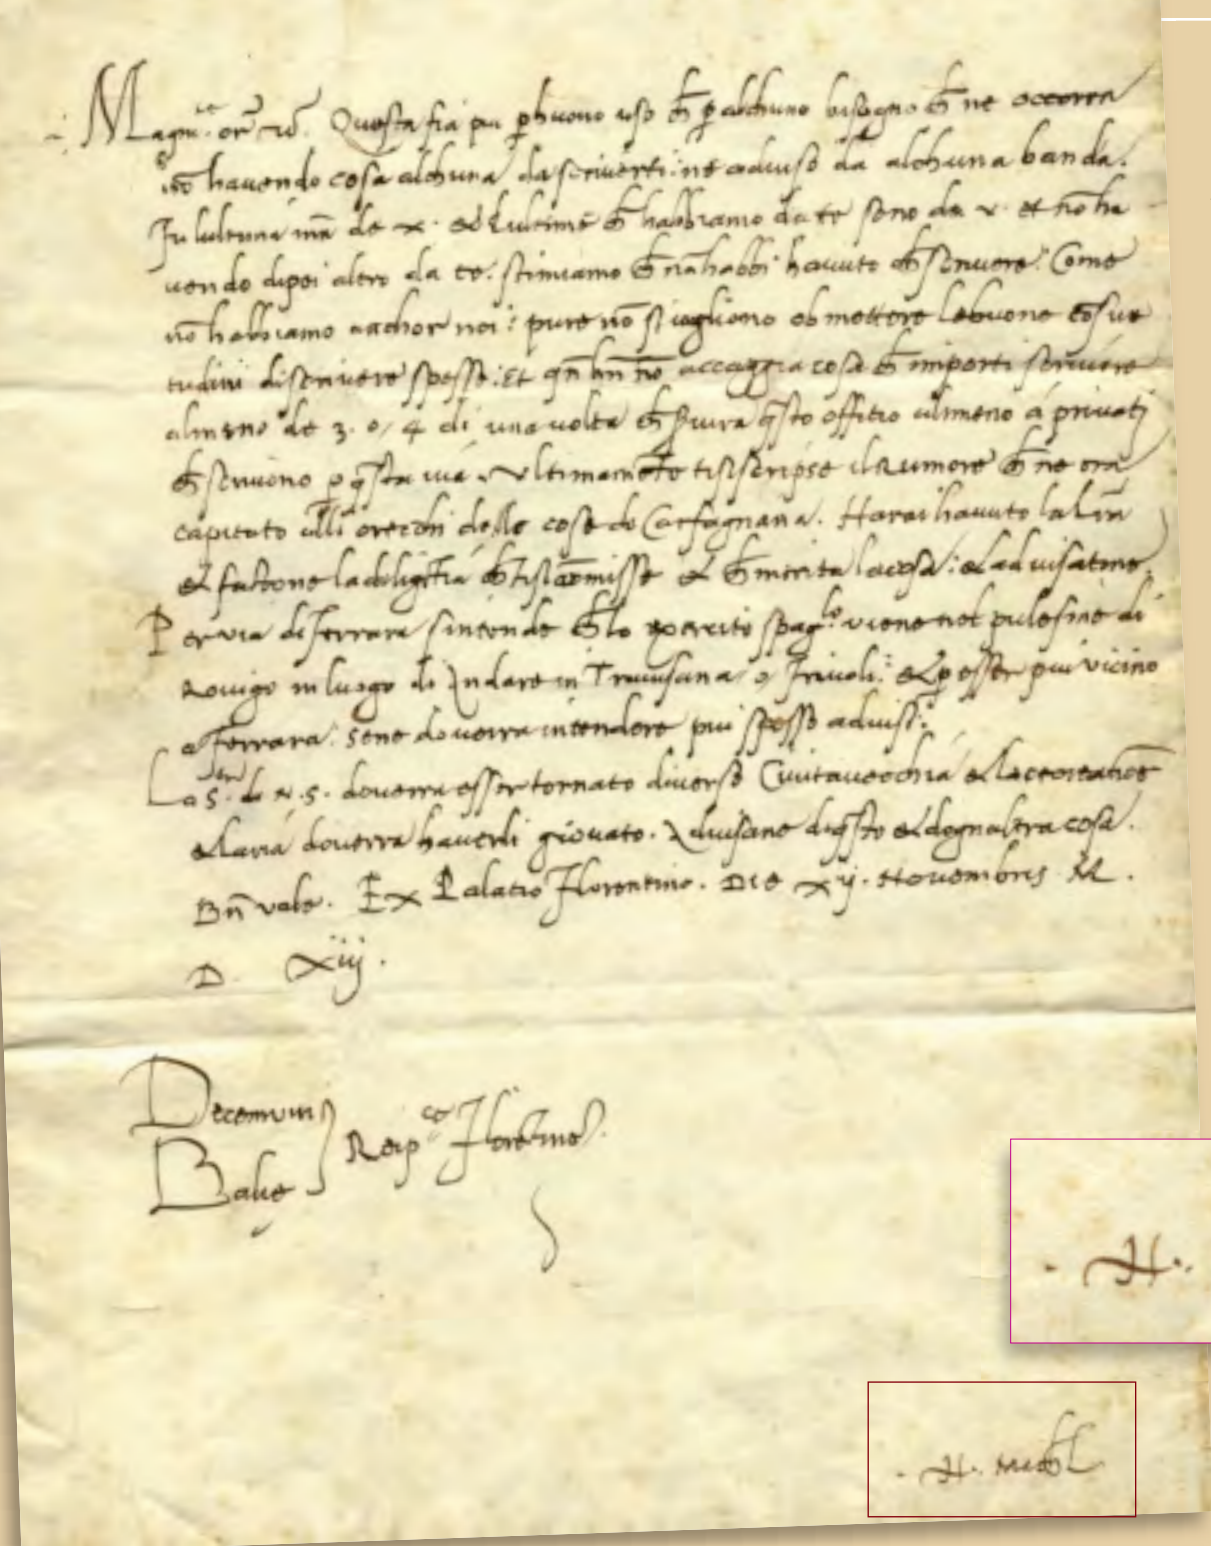 Magn.ce or.or etc. Questa fia piu p buono uso ch p alchuno bisogno ch ne occorra
nō havendo cosa alchuna da scriverti: ne adviso da alchuna banda.
de x. et ch habbiamo da te sono de v. et nō ha
vendo dipoi altro da te. stimiamo ch nō habbi havuto ch scrivere: Come
nō habbiamo anchor noi: pure nō si vogliono obmettere le buone cōsue
tudini di scrivere spesso: Et nō accaggia cosa ch importi scrivere
almeno de 3. o, 4 dì una volta ch qsto offitio almeno a privatj
ch scrivono p qsta via. Ultimamēte ti si scripse il Rumore ch ne era
capitato alli orecchi delle cose de Carfagnana. Harai havuto la lrā
et factone la diligētia ch ti si cōmisse et ch merita la cosa: et advisatone.
Per via di Ferrara sintende ch lo exercito spag.lo viene nel pulesine di
Rovigo in luogo di Andare in Trivisana o Frivoli: et p esser piu vicino
a Ferrara: sene doverra intendere piu spesso advisi:
La S.tà di N. S. doverra esser tornato diverso Civitavecchia et la recreatiōe
et laria doverra haverli giovato. Advisane di qsto et dognaltra cosa.
Bn̄ vale. Ex Palatio Florentino. Die xij. Novembris M.
D. Xiij.
Decemviri
Balie
Reip.ce Florētine
. N.
. N. Michl